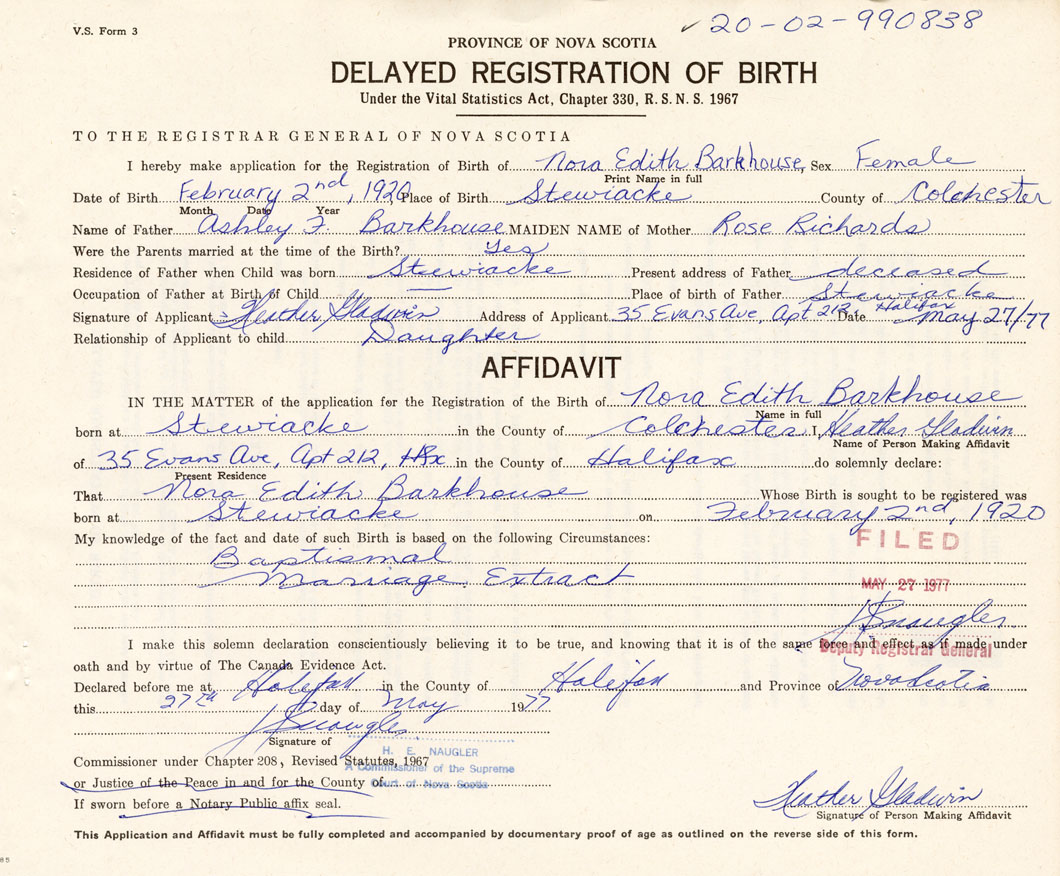 V.S. Form 3
✓20-02-990838
PROVINCE OF NOVA SCOTIA
DELAYED REGISTRATION OF BIRTH
Under the Vital Statistics Act, Chapter 330, R.S.N.S. 1967
TO THE REGISTRAR GENERAL OF NOVA SCOTIA
I hereby make application for the Registration of Birth of Nora Edith Barkhouse, Sex Female
Print Name in full
Date of Birth February 2nd, 1920 Place of Birth Stewiacke County of Colchester
Month Date Year
Name of Father Ashley F. Barkhouse MAIDEN NAME of Mother Rose Richards
Were the Parents married at the time of the Birth? Yes
Residence of Father when Child was born Stewiacke Present address of Father deceased
Occupation of Father at Birth of Child — Place of birth of Father Stewiacke
Signature of Applicant Heather Gladwin Address of Applicant 35 Evans Ave, Apt 212, Halifax Date May 27/77
Relationship of Applicant to child Daughter
AFFIDAVIT
IN THE MATTER of the application for the Registration of the Birth of Nora Edith Barkhouse
Name in full
born at Stewiacke in the County of Colchester I, Heather Gladwin
Name of Person Making Affidavit
of 35 Evans Ave, Apt 212, Hfx in the County of Halifax do solemnly declare:
Present Residence
That Nora Edith Barkhouse Whose Birth is sought to be registered was
born at Stewiacke on February 2nd, 1920
My knowledge of the fact and date of such Birth is based on the following Circumstances:
FILED
Baptismal
Marriage Extract
MAY 27 1977
HENaugler
I make this solemn declaration conscientiously believing it to be true, and knowing that it is of the same force and effect as if made under
Deputy Registrar General
oath and by virtue of The Canada Evidence Act.
Declared before me at Halifax in the County of Halifax and Province of Nova Scotia
this 27th day of May 1977
HENaugler
Signature of
H. E. NAUGLER
Commissioner under Chapter 208, Revised Statutes, 1967
A Commissioner of the Supreme
or Justice of the Peace in and for the County of
Court of Nova Scotia
If sworn before a Notary Public affix seal.
Heather Gladwin
Signature of Person Making Affidavit
This Application and Affidavit must be fully completed and accompanied by documentary proof of age as outlined on the reverse side of this form.
85